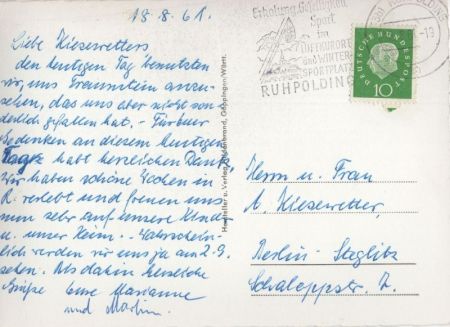 18.8.61.
Liebe Kiesewetters
den heutigen Tag benutzten
wir, uns Traunstein anzu-
sehen, das uns aber nicht son-
derlich gefallen hat. - Für Euer
Gedenken an diesem heutigen
Tage habt herzlichen Dank.
Wir haben schöne Wochen in
R. verlebt und freuen uns
nun sehr auf unsere Kinder
u. unser Heim. - Wahrschein-
lich werden wir uns ja am 2.9.
sehen. Bis dahin herzliche
Grüße Eure Marianne
und Martin.
Hersteller u. Verlag Göppingen/Württ.
Erholung, Geselligkeit
Sport
im
LUFTKURORT
und WINTER
SPORTPLATZ
RUHPOLDING
RUHPOLDING
-13
DEUTSCHE BUNDESPOST
10
Herrn u. Frau
A. Kiesewetter,
Berlin-Steglitz